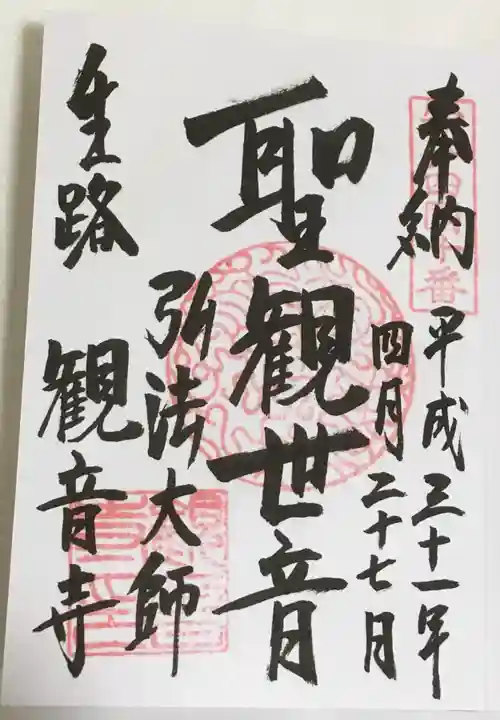 奉納 平成三十一年
四月二十七日
聖観世音
弘法大師
生路 観音寺